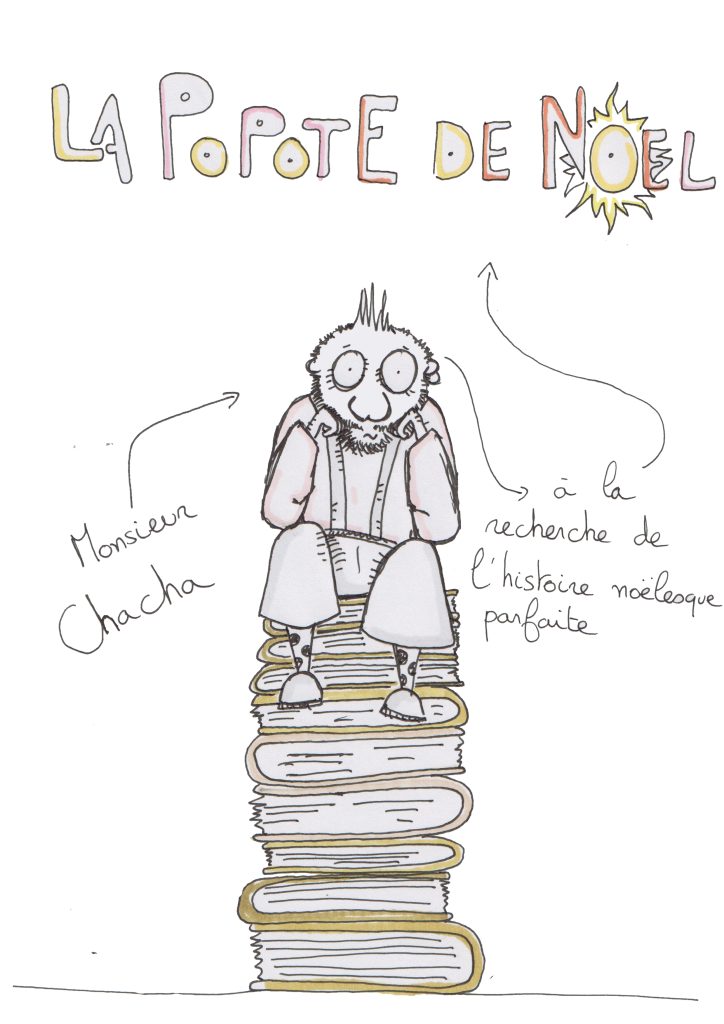 LA POPOTE DE NOEL
Monsieur
Chacha
à la
recherche de
l'histoire noëlesque
parfaite